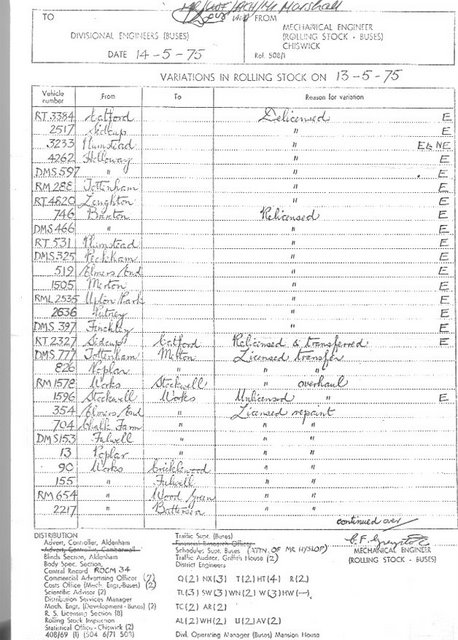 TO
FROM
DIVISIONAL ENGINEERS (BUSES)
MECHANICAL ENGINEER
(ROLLING STOCK - BUSES)
CHISWICK
DATE 14-5-75
Ref. 508/1
VARIATIONS IN ROLLING STOCK ON 13-5-75
Vehicle number From To Reason for variation
RT 3384 Catford Delicensed E
2517 Sidcup " E
3233 Plumstead " E & NE
4262 Holloway " E
DMS 597 " " E
RM 288 Tottenham " E
RT 4820 Loughton " E
746 Brixton Relicensed E
DMS 466 " " E
RT 531 Plumstead " E
DMS 325 Peckham " E
519 Elmers End " E
1505 Merton " E
RML 2535 Upton Park " E
2636 Putney " E
DMS 397 Finchley " E
RT 2327 Sidcup Catford Relicensed & transferred E
DMS 777 Tottenham Merton Licensed transfer
826 Poplar " " "
RM 1578 Works Stockwell " overhaul
1596 Stockwell Works Unlicensed " E
354 Elmers End " Licensed repaint
704 Chalk Farm " " "
DMS 153 Fulwell " " "
13 Poplar " " "
90 Works Cricklewood " "
155 " Fulwell " "
RM 654 " Wood Green " "
2217 " Battersea " "
continued over
DISTRIBUTION
Advert. Controller, Aldenham
Advert. Controller, Camberwell
Blinds Section, Aldenham
Body Spec. Section,
Central Record ROOM 34
Commercial Advertising Officer (2)
Costs Office (Mech. Engr. Buses) (2)
Scientific Advisor (2)
Distribution Services Manager
Mech. Engr. (Development - Buses) (2)
R. S. Licensing Section (8)
Rolling Stock Inspection
Statistical Office - Chiswick (2)
408/69 (1) (504 6/71 503)
Traffic Supt. (Buses)
Schedules Supt. Buses (ATTN. OF MR HYSLOP)
Traffic Auditor, Griffith House (2)
District Engineers
Q (2) NX (3) T (2) HT (4) R (2)
TL (3) SW (3) WN (2) W (3) HW (—)
TC (2) AR (2)
AL (2) WH (2) U (2) AV (2)
Disk Operating Manager (Buses) Mansion House
MECHANICAL ENGINEER
(ROLLING STOCK - BUSES)